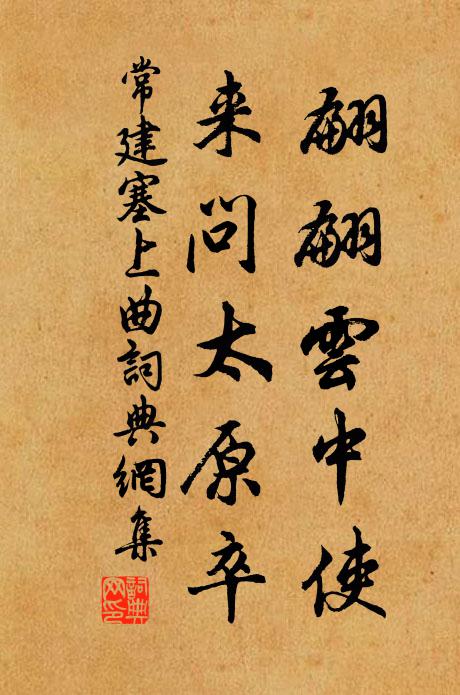 翩翩雲中使
来問太原卒
常建塞上曲詞典網集
詞典
网印